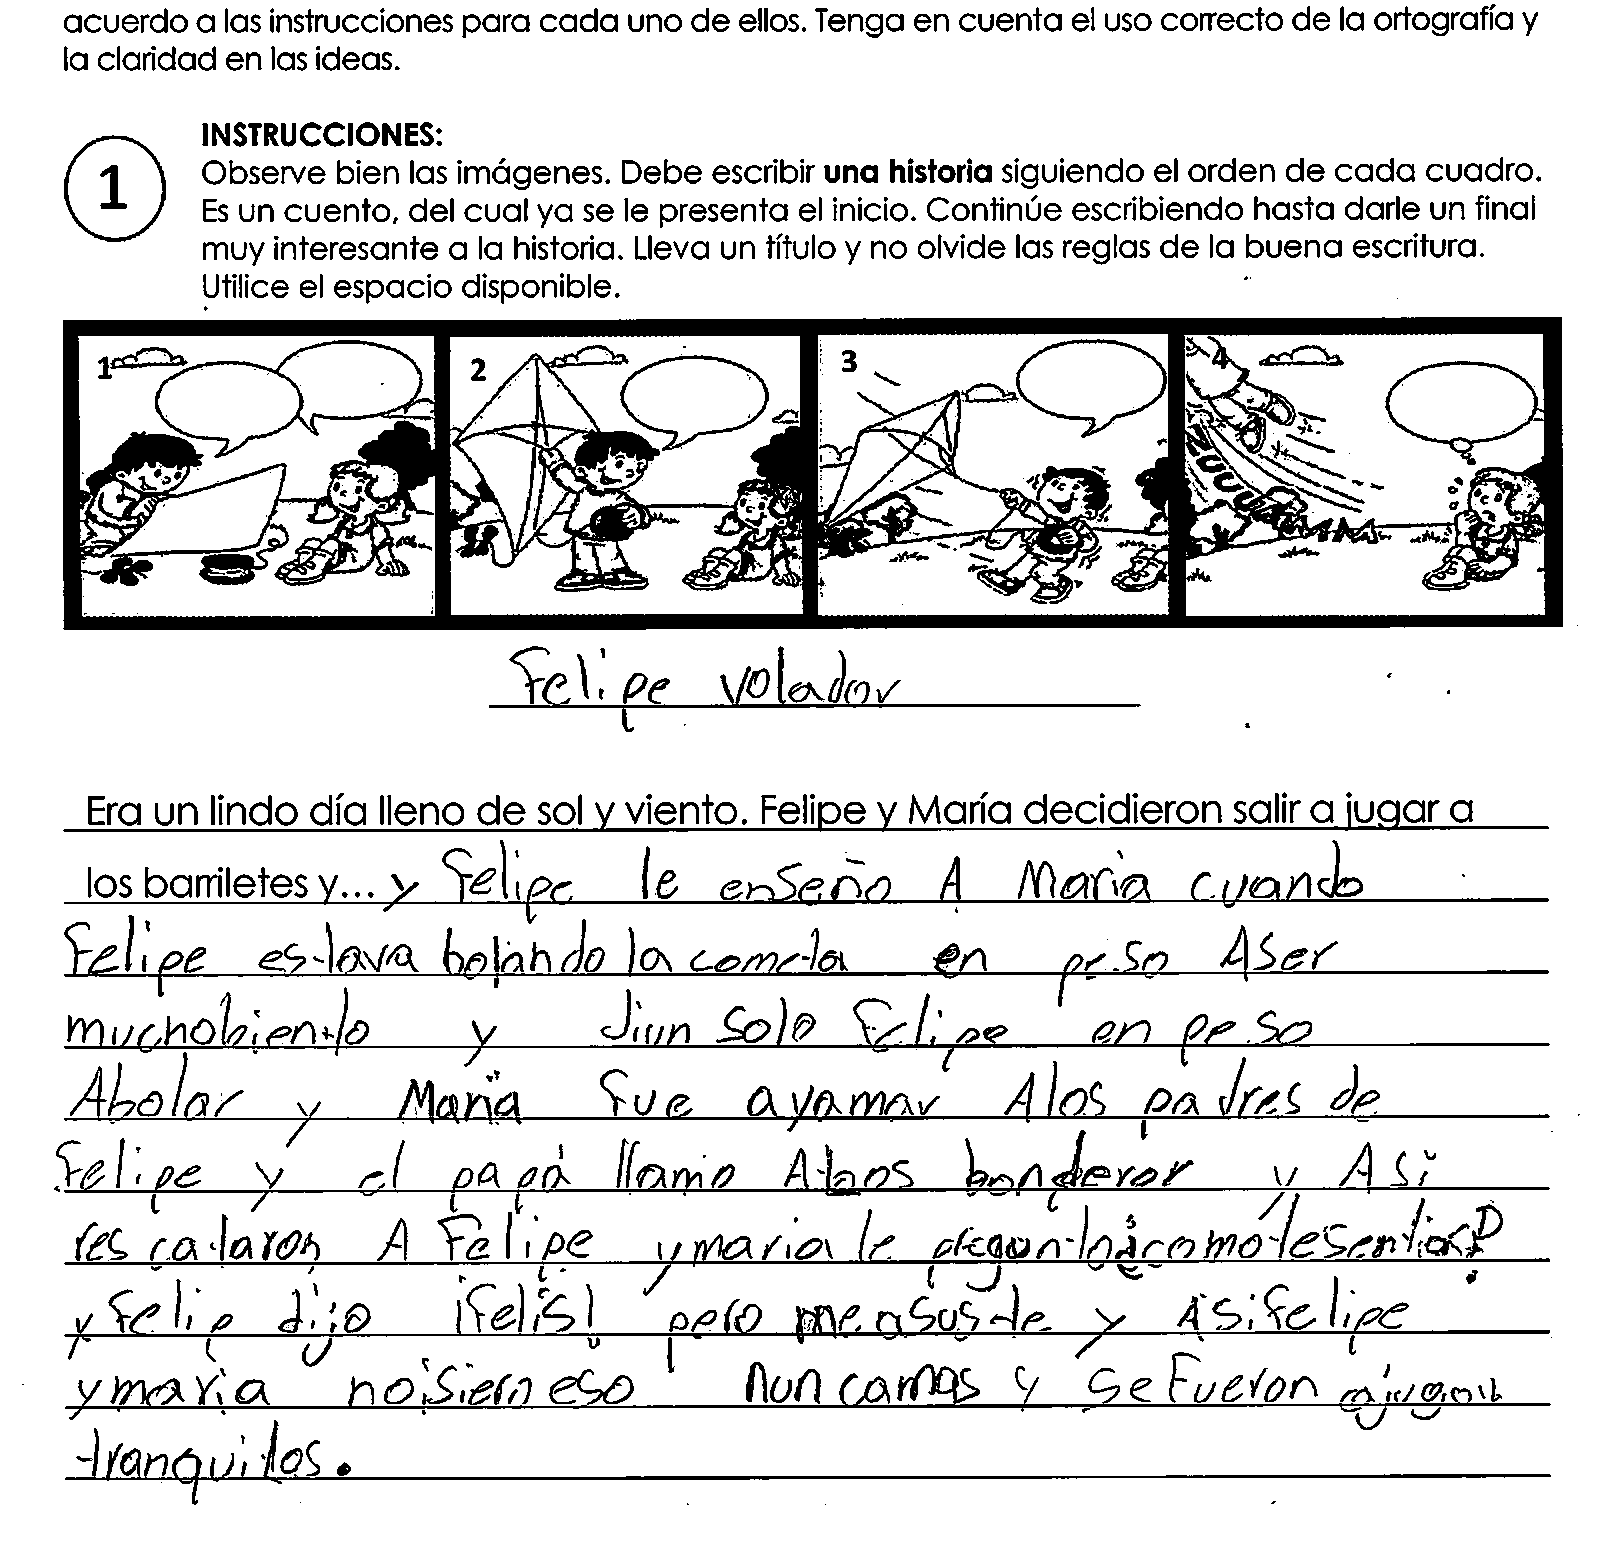 acuerdo a las instrucciones para cada uno de ellos. Tenga en cuenta el uso correcto de la ortografía y
la claridad en las ideas.
1
INSTRUCCIONES:
Observe bien las imágenes. Debe escribir una historia siguiendo el orden de cada cuadro.
Es un cuento, del cual ya se le presenta el inicio. Continúe escribiendo hasta darle un final
muy interesante a la historia. Lleva un título y no olvide las reglas de la buena escritura.
Utilice el espacio disponible.
1 2 3 4
ZUUUUMMM
Felipe volador
Era un lindo día lleno de sol y viento. Felipe y María decidieron salir a jugar a
los barriletes y... y Felipe le enseño A Maria cuando
Felipe estava bolando la cometa en peso Aser
muchobiento y diun solo Felipe en peso
Abolar y Maria fue ayamar Alos padres de
Felipe y el papá llamo Alos bonderor y ASi
rescataron A Felipe ymaria le pregunto ¿comotesentias?
y Felip dijo ¡Felis! pero measuste y Asifelipe
ymaria noisiern eso nuncamas y se Fueron ajugar
tranquilos.